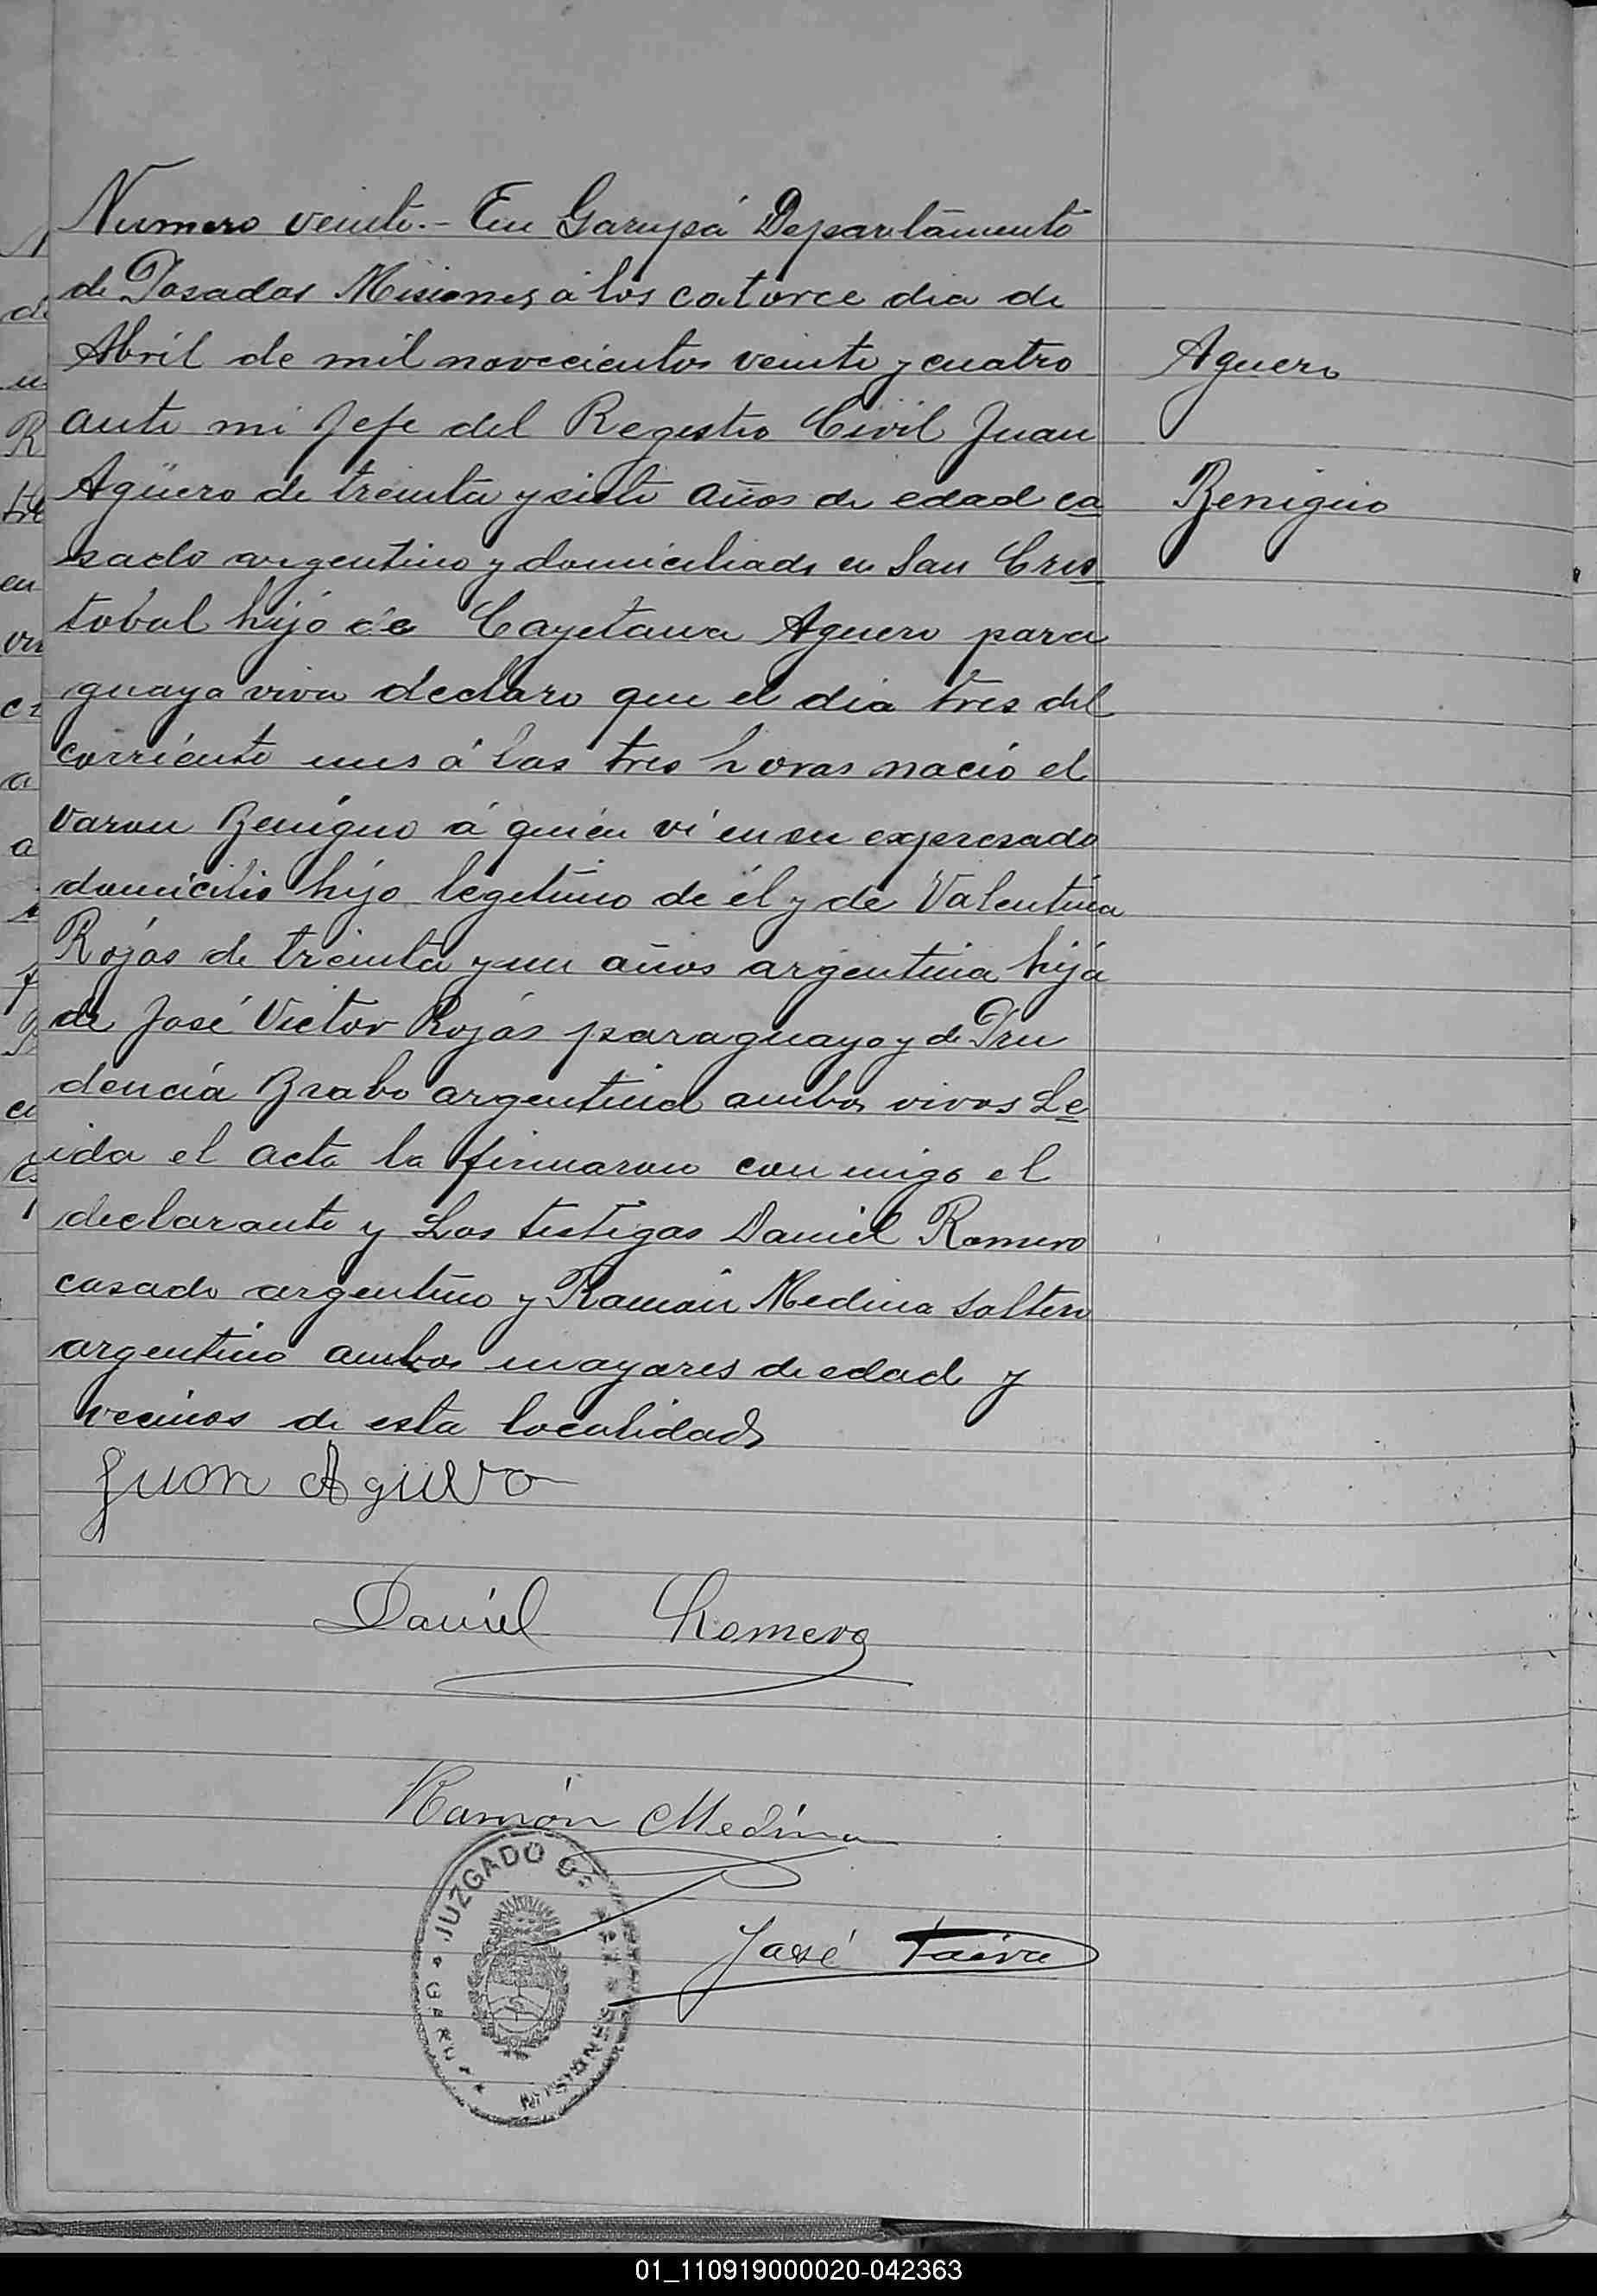 Numero veinte.- En Garupá Departamento
de Posadas Misiones, á los catorce dia de
Abril de mil novecientos veinte y cuatro
Aguero
ante mi Jefe del Registro Civil Juan
Agüero de treinta y siete años de edad ca
Benigno
sado argentino y domiciliado en San Cris
tobal hijo de Cayetana Aguero para
guaya viva declaro que el dia tres del
corriente mes á las tres horas nació el
varon Benigno á quien vi en su expresado
domicilio hijo legitimo de él y de Valentina
Rojas de treinta y un años argentina hija
de José Victor Rojas paraguayo y de Pru
dencia Brabo argentina ambos vivos Le
ida el acta la firmaron con migo el
declarante y Los testigos Daniel Romero
casado argentino y Ramón Medina soltero
argentino ambos mayores de edad y
vecinos de esta localidad
Juan Agüero
Daniel Romero
Ramón Medina
JUZGADO
José Paiva
GARU
MISIONES
01_110919000020-042363